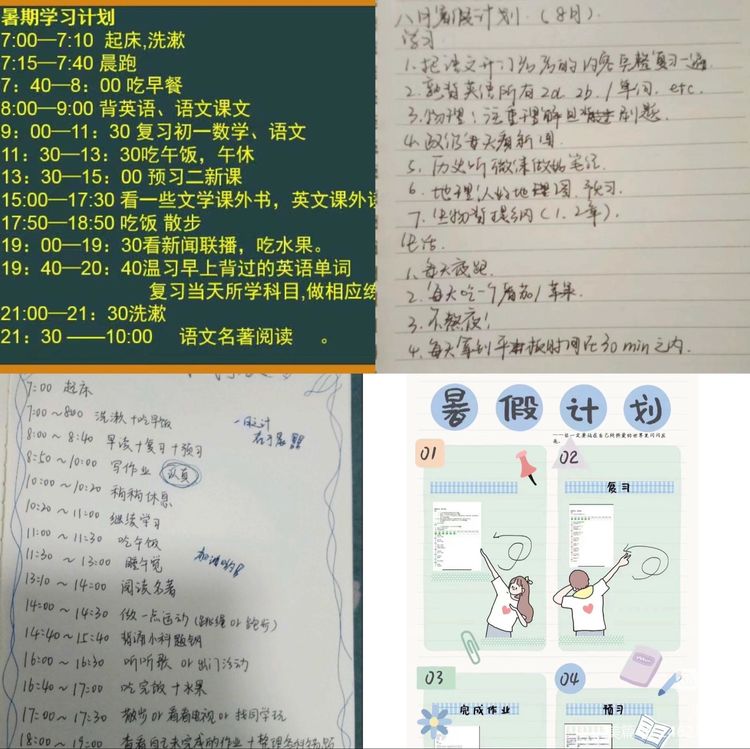 暑期学习计划
7:00—7:10 起床,洗漱
7:15—7:40 晨跑
7：40—8：00 吃早餐
8:00—9:00 背英语、语文课文
9：00—11：30 复习初一数学、语文
11：30—13：30吃午饭，午休
13：30—15：00 预习二新课
15:00—17:30 看一些文学课外书，英文课外读
17:50—18:50 吃饭 散步
19：00—19：30看新闻联播，吃水果。
19：40—20：40温习早上背过的英语单词
复习当天所学科目,做相应练
21:00—21：30洗漱
21：30 ——10:00 语文名著阅读 。
八月暑假计划.（8月）
学习
1.把语文开门的内容完整复习一遍
2.熟背英语所有2a. 2b. 1单词. etc.
3.物理：注重理解且刷题.
4.政治每天看新闻.
5.历史听微课做好笔记
6.地理认好地理图.预习.
7.生物背提纲(1.2年).
生活.
1.每天夜跑
2.每天吃一个番茄/苹果.
3.不熬夜!
4.每天拿到平板时间在30 min之内.
7:00 起床
7:00～8:00 洗漱+吃早饭
一日之计
在于晨
8:00～8:40 早读+复习+预习
8:50～10:00 写作业 认真
10:00～10:20 稍稍休息
10:20～11:00 继续学习
11:00～11:30 吃午饭
11:30～13:00 睡午觉
13:10～14:00 阅读名著
14:00～14:30 做一点运动(跳绳 or 跑步)
14:40～15:40 背诵小科题纲
16:00～16:30 听听歌 or 出门活动
16:40～17:00 吃完饭+水果
17:00～17:30 散步 or 看看电视 or 找同学玩
18:00～19:00 看看自己未完成的作业+整理各科错题
暑假计划
01
02
复习
03
完成作业
04
预习